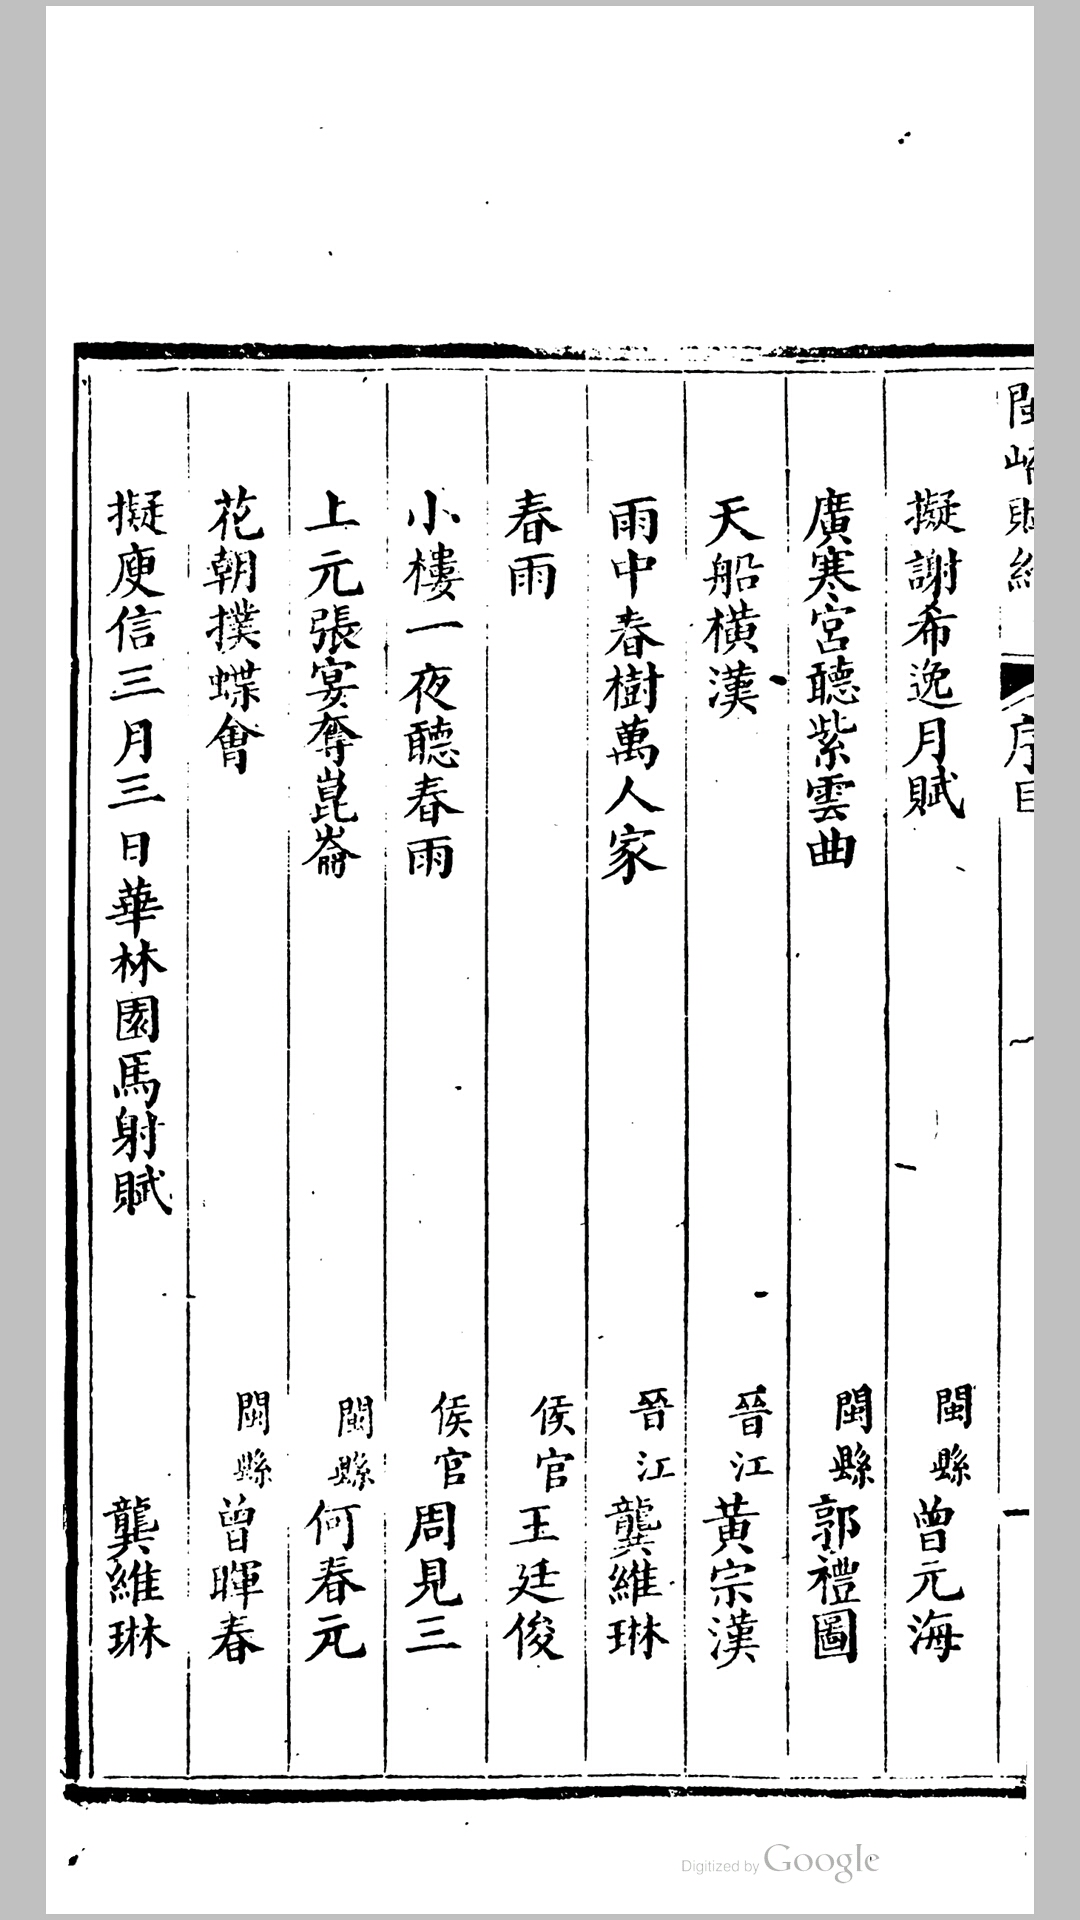 擬謝希逸月賦 閩縣 曾元海
廣寒宮聽紫雲曲 閩縣 郭禮圖
天船橫漢 晉江 黃宗漢
雨中春樹萬人家 晉江 龔維琳
春雨 侯官 王廷俊
小樓一夜聽春雨 侯官 周見三
上元張宴奪崑崙 閩縣 何春元
花朝撲蝶會 閩縣 曾暉春
擬庾信三月三日華林園馬射賦 龔維琳
Digitized by Google